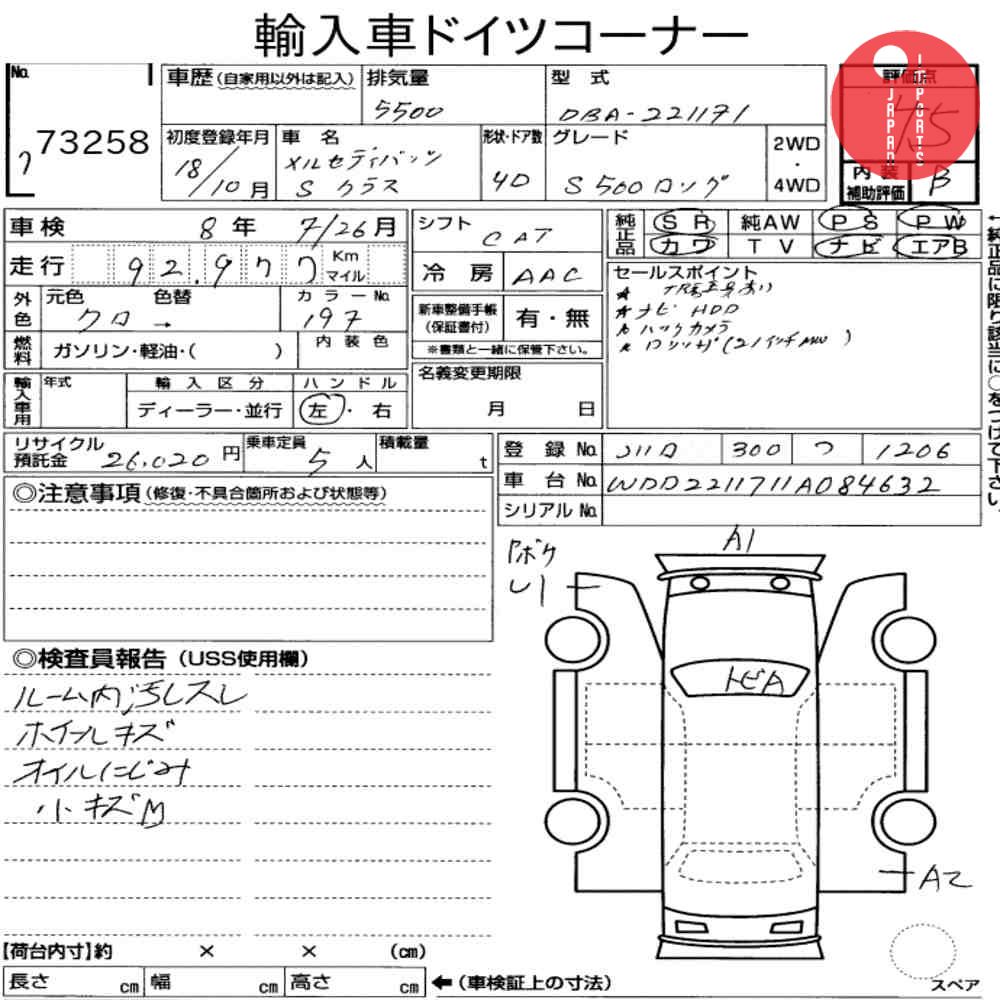 輸入車ドイツコーナー
No.
73258
車歴(自家用以外は記入)
排気量
5500
型 式
DBA-221171
評価点
JAPAN IMPORTS
初度登録年月
18/10月
車 名
メルセデスベンツ
Sクラス
形状・ドア数
4D
グレード
S500ロング
2WD
・
4WD
内装
補助評価
B
車検
8年 7/26月
走行
92,977
Km
マイル
外色
元色 色替
クロ →
カラーNo.
197
燃料
ガソリン・軽油・( )
内装色
シフト
CAT
冷房
AAC
新車整備手帳
(保証書付)
有・無
※書類と一緒に保管下さい。
名義変更期限
月 日
純正品
SR 純AW PS PW
カワ TV ナビ エアB
←純正品に限り該当に○をつけて下さい。
セールスポイント
★ナビ HDD
★バックカメラ
輸入車用
年式
輸入区分
ディーラー・並行
ハンドル
左・右
リサイクル
預託金
26,020円
乗車定員
5人
積載量
t
登録No.
300 つ 1206
車台No.
WDD2211711A084632
シリアルNo.
◎注意事項(修復・不具合箇所および状態等)
A1
U1
トビA
A2
◎検査員報告(USS使用欄)
ルーム内汚レスレ
ホイールキズ
オイルにじみ
小キズ
【荷台内寸】約 × × (cm)
長さ cm 幅 cm 高さ cm
←(車検証上の寸法)
スペア